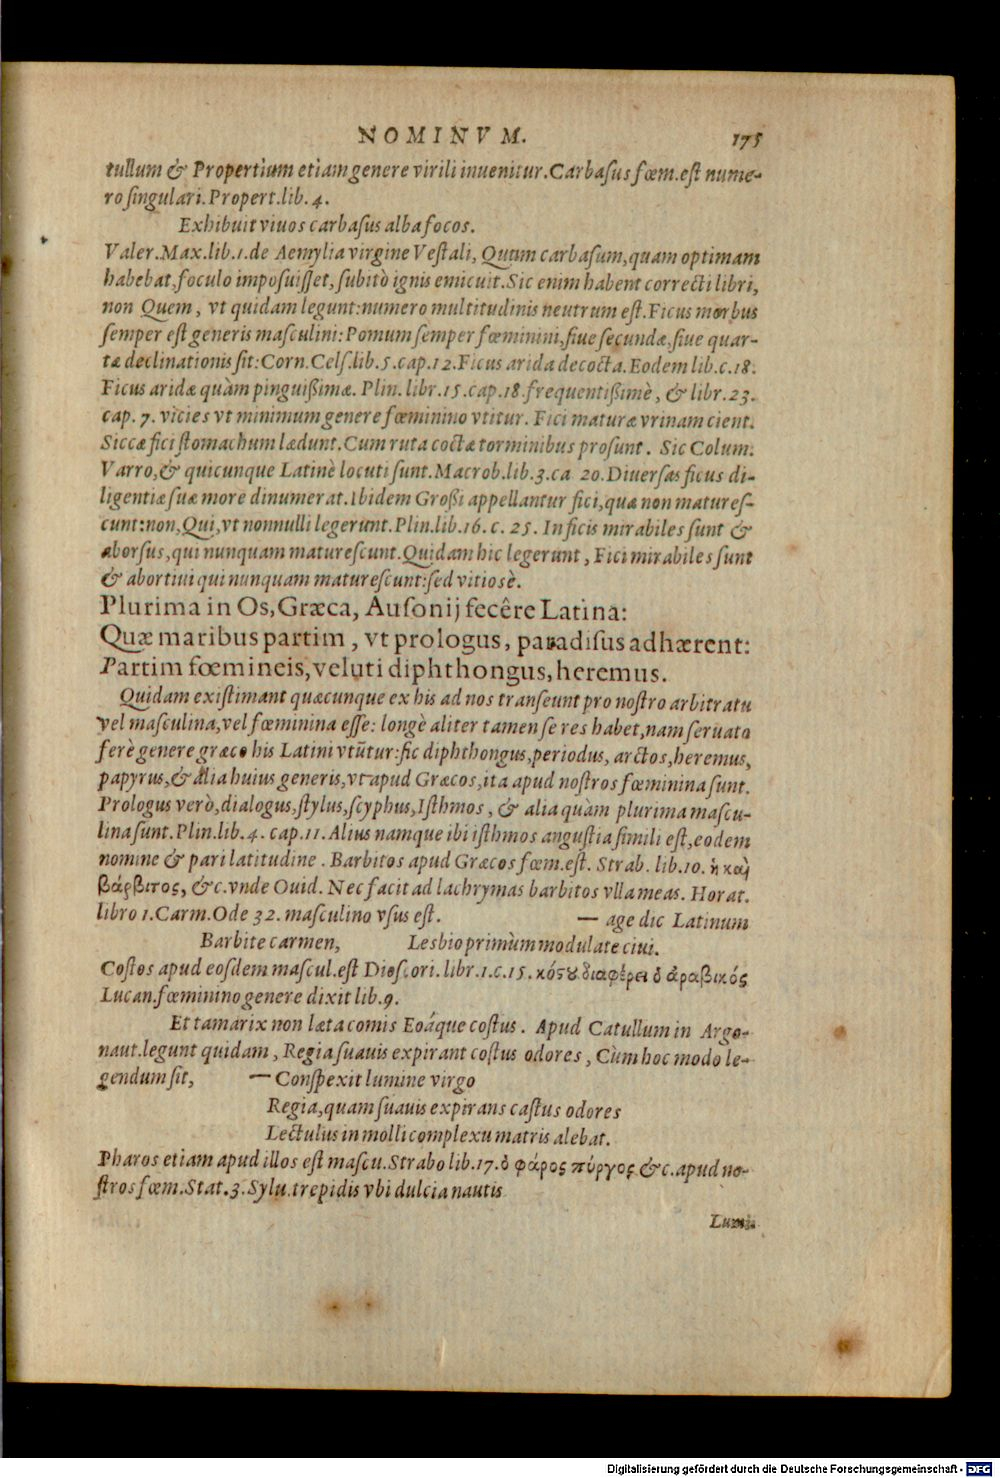 NOMINVM. 175
tullum & Propertium etiam genere virili inuenitur. Carbasus fœm. est nume-
ro singulari. Propert. lib. 4.
Exhibuit viuos carbasus alba focos.
Valer. Max. lib. 1. de Aemylia virgine Vestali, Quum carbasum, quam optimam
habebat, foculo imposuisset, subitò ignis emicuit. Sic enim habent correcti libri,
non Quem, vt quidam legunt: numero multitudinis neutrum est. Ficus morbus
semper est generis masculini: Pomum semper fœminini, siue secundæ, siue quar-
tæ declinationis sit: Corn. Cels. lib. 5. cap. 12. Ficus arida decocta. Eodem lib. c. 18.
Ficus aridæ quàm pinguißimæ. Plin. libr. 15. cap. 18. frequentißimè, & libr. 23.
cap. 7. vicies vt minimum genere fœminino vtitur. Fici maturæ vrinam cient.
Siccæ fici stomachum lædunt. Cum ruta coctæ torminibus prosunt. Sic Colum.
Varro, & quicunque Latinè locuti sunt. Macrob. lib. 3. ca 20. Diuersas ficus di-
ligentiæ suæ more dinumerat. Ibidem Großi appellantur fici, quæ non matures-
cunt: non, Qui, vt nonnulli legerunt. Plin. lib. 16. c. 25. In ficis mirabiles sunt &
aborsus, qui nunquam maturescunt. Quidam hic legerunt, Fici mirabiles sunt
& abortiui qui nunquam maturescunt: sed vitiosè.
Plurima in Os, Græca, Ausonij fecêre Latina:
Quæ maribus partim, vt prologus, paradisus adhærent:
Partim fœmineis, veluti diphthongus, heremus.
Quidam existimant quæcunque ex his ad nos transeunt pro nostro arbitratu
vel masculina, vel fœminina esse: longè aliter tamen se res habet, nam seruato
ferè genere græco his Latini vtũtur: sic diphthongus, periodus, arctos, heremus,
papyrus, & alia huius generis, vt apud Græcos, ita apud nostros fœminina sunt.
Prologus verò, dialogus, stylus, scyphus, Isthmos, & alia quàm plurima mascu-
lina sunt. Plin. lib. 4. cap. 11. Alius namque ibi isthmos angustia simili est, eodem
nomine & pari latitudine. Barbitos apud Græcos fœm. est. Strab. lib. 10. ἡ καὶ
βάρβιτος, &c. vnde Ouid. Nec facit ad lachrymas barbitos vlla meas. Horat.
libro 1. Carm. Ode 32. masculino vsus est. — age dic Latinum
Barbite carmen, Lesbio primùm modulate ciui.
Costos apud eosdem mascul. est Dioscori. libr. 1. c. 15. κόςου διαφέρει ὁ ἀραβικός
Lucan. fœminino genere dixit lib. 9.
Et tamarix non læta comis Eoáque costus. Apud Catullum in Argo-
naut. legunt quidam, Regia suauis expirant costus odores, Cùm hoc modo le-
gendum sit, — Conspexit lumine virgo
Regia, quam suauis expirans castus odores
Lectulus in molli complexu matris alebat.
Pharos etiam apud illos est mascu. Strabo lib. 17. ὁ φάρος πύργος &c. apud no-
stros fœm. Stat. 3. Sylu. trepidis vbi dulcia nautis
Digitalisierung gefördert durch die Deutsche Forschungsgemeinschaft - DFG